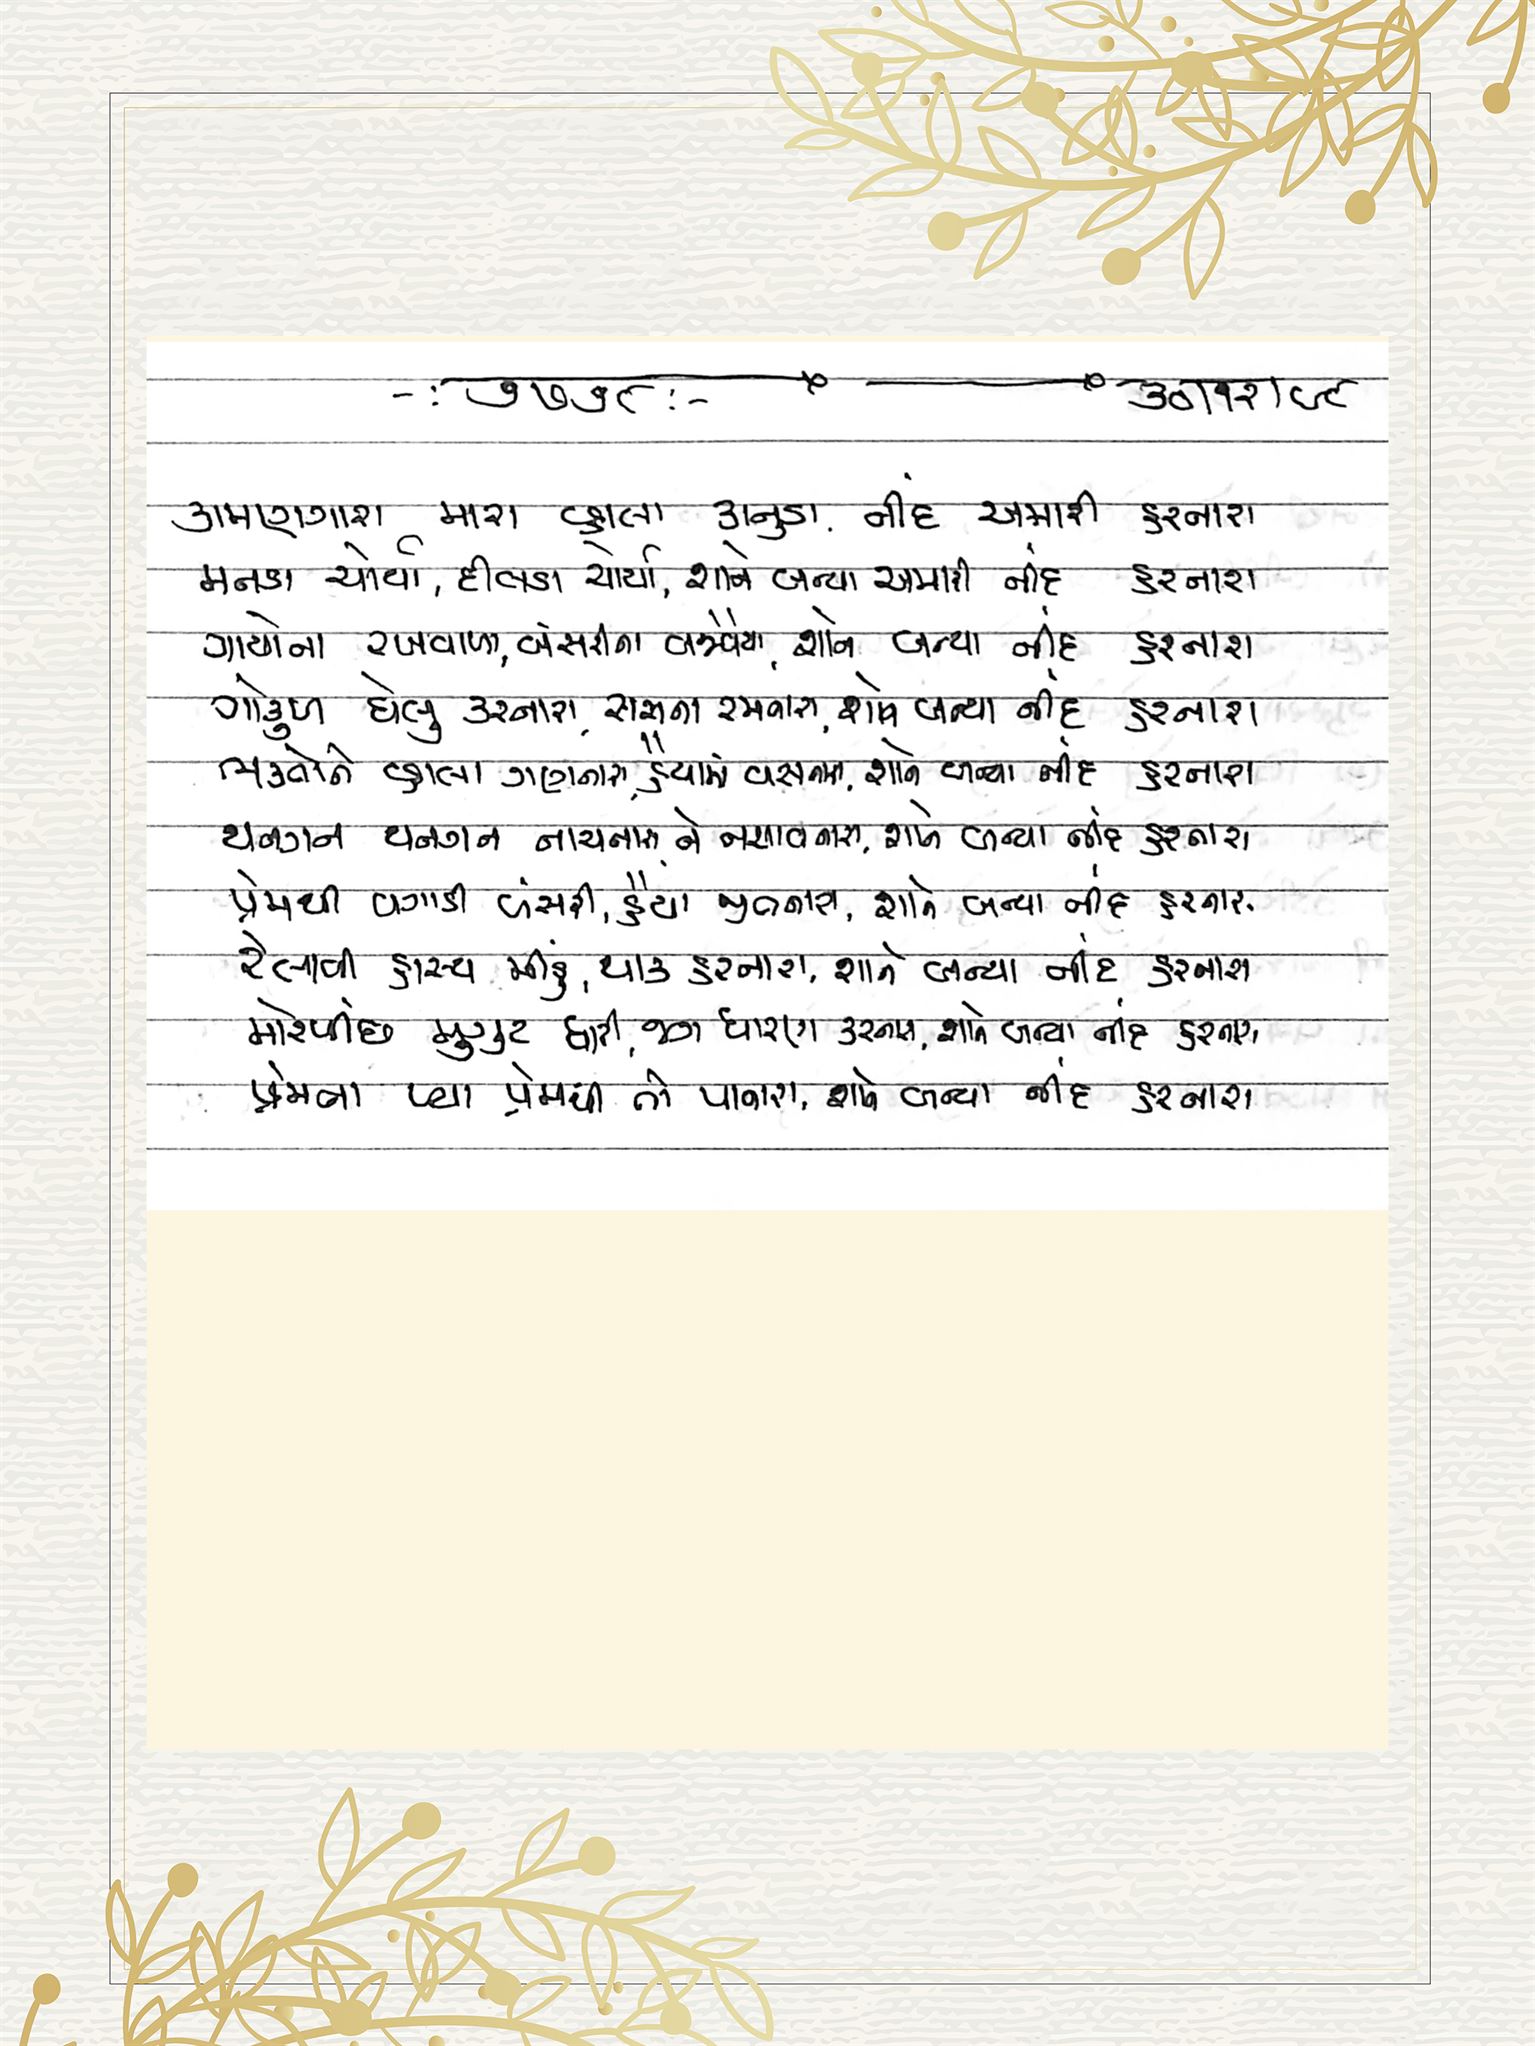 -: ૭૭૭૯ :-
કામણગારા મારા વ્હાલા કાનુડા. નીંદ અમારી હરનારા
મનડા ચોર્યા, દીલડા ચોર્યા, શાને બન્યા અમારી નીંદ હરનારા
ગાયોના રખવાળા, બંસરીના બજવૈયા, શાને બન્યા નીંદ હરનારા
ગોકુળ ઘેલુ કરનારા, રાસના રમનારા, શાને બન્યા નીંદ હરનારા
ભક્તોને વ્હાલા ગણનારા, હૈયામાં વસનારા, શાને બન્યા નીંદ હરનારા
થનગન થનગન નાચનારા ને નચાવનારા, શાને બન્યા નીંદ હરનારા
પ્રેમથી વગાડી બંસરી, હૈયા જીતનારા, શાને બન્યા નીંદ હરનાર.
રેલાવી હાસ્ય મીઠું, થાક હરનારા, શાને બન્યા નીંદ હરનારા
મોરપીંછ મુગુટ ધારી, જગ ધારણ કરનારા, શાને બન્યા નીંદ હરનારા
પ્રેમના પ્યા પ્રેમથી તો પાનારા, શાને બન્યા નીંદ હરનારા